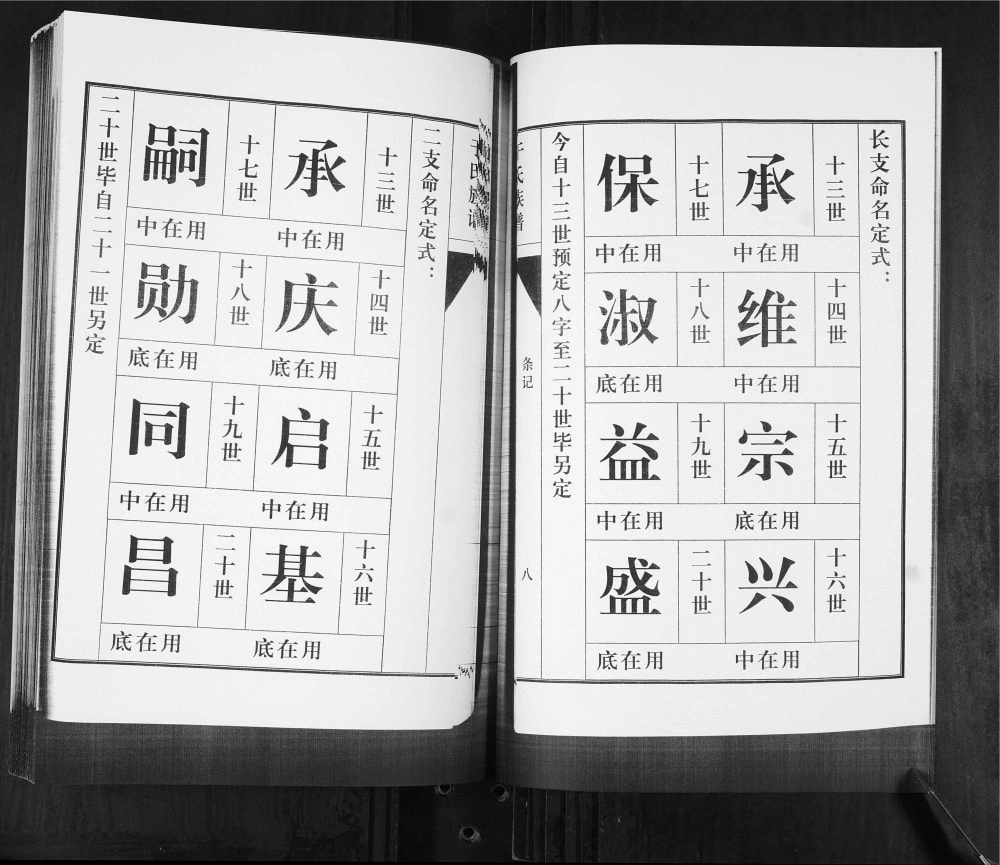 长支命名定式：
十三世
承
用在中
十四世
维
用在中
十五世
宗
用在底
十六世
兴
用在中
十七世
保
用在中
十八世
淑
用在底
十九世
益
用在中
二十世
盛
用在底
今自十三世预定八字至二十世毕另定
氏族谱
条记
八
二支命名定式：
十三世
承
用在中
十四世
庆
用在底
十五世
启
用在中
十六世
基
用在底
十七世
嗣
用在中
十八世
勋
用在底
十九世
同
用在中
二十世
昌
用在底
二十世毕自二十一世另定